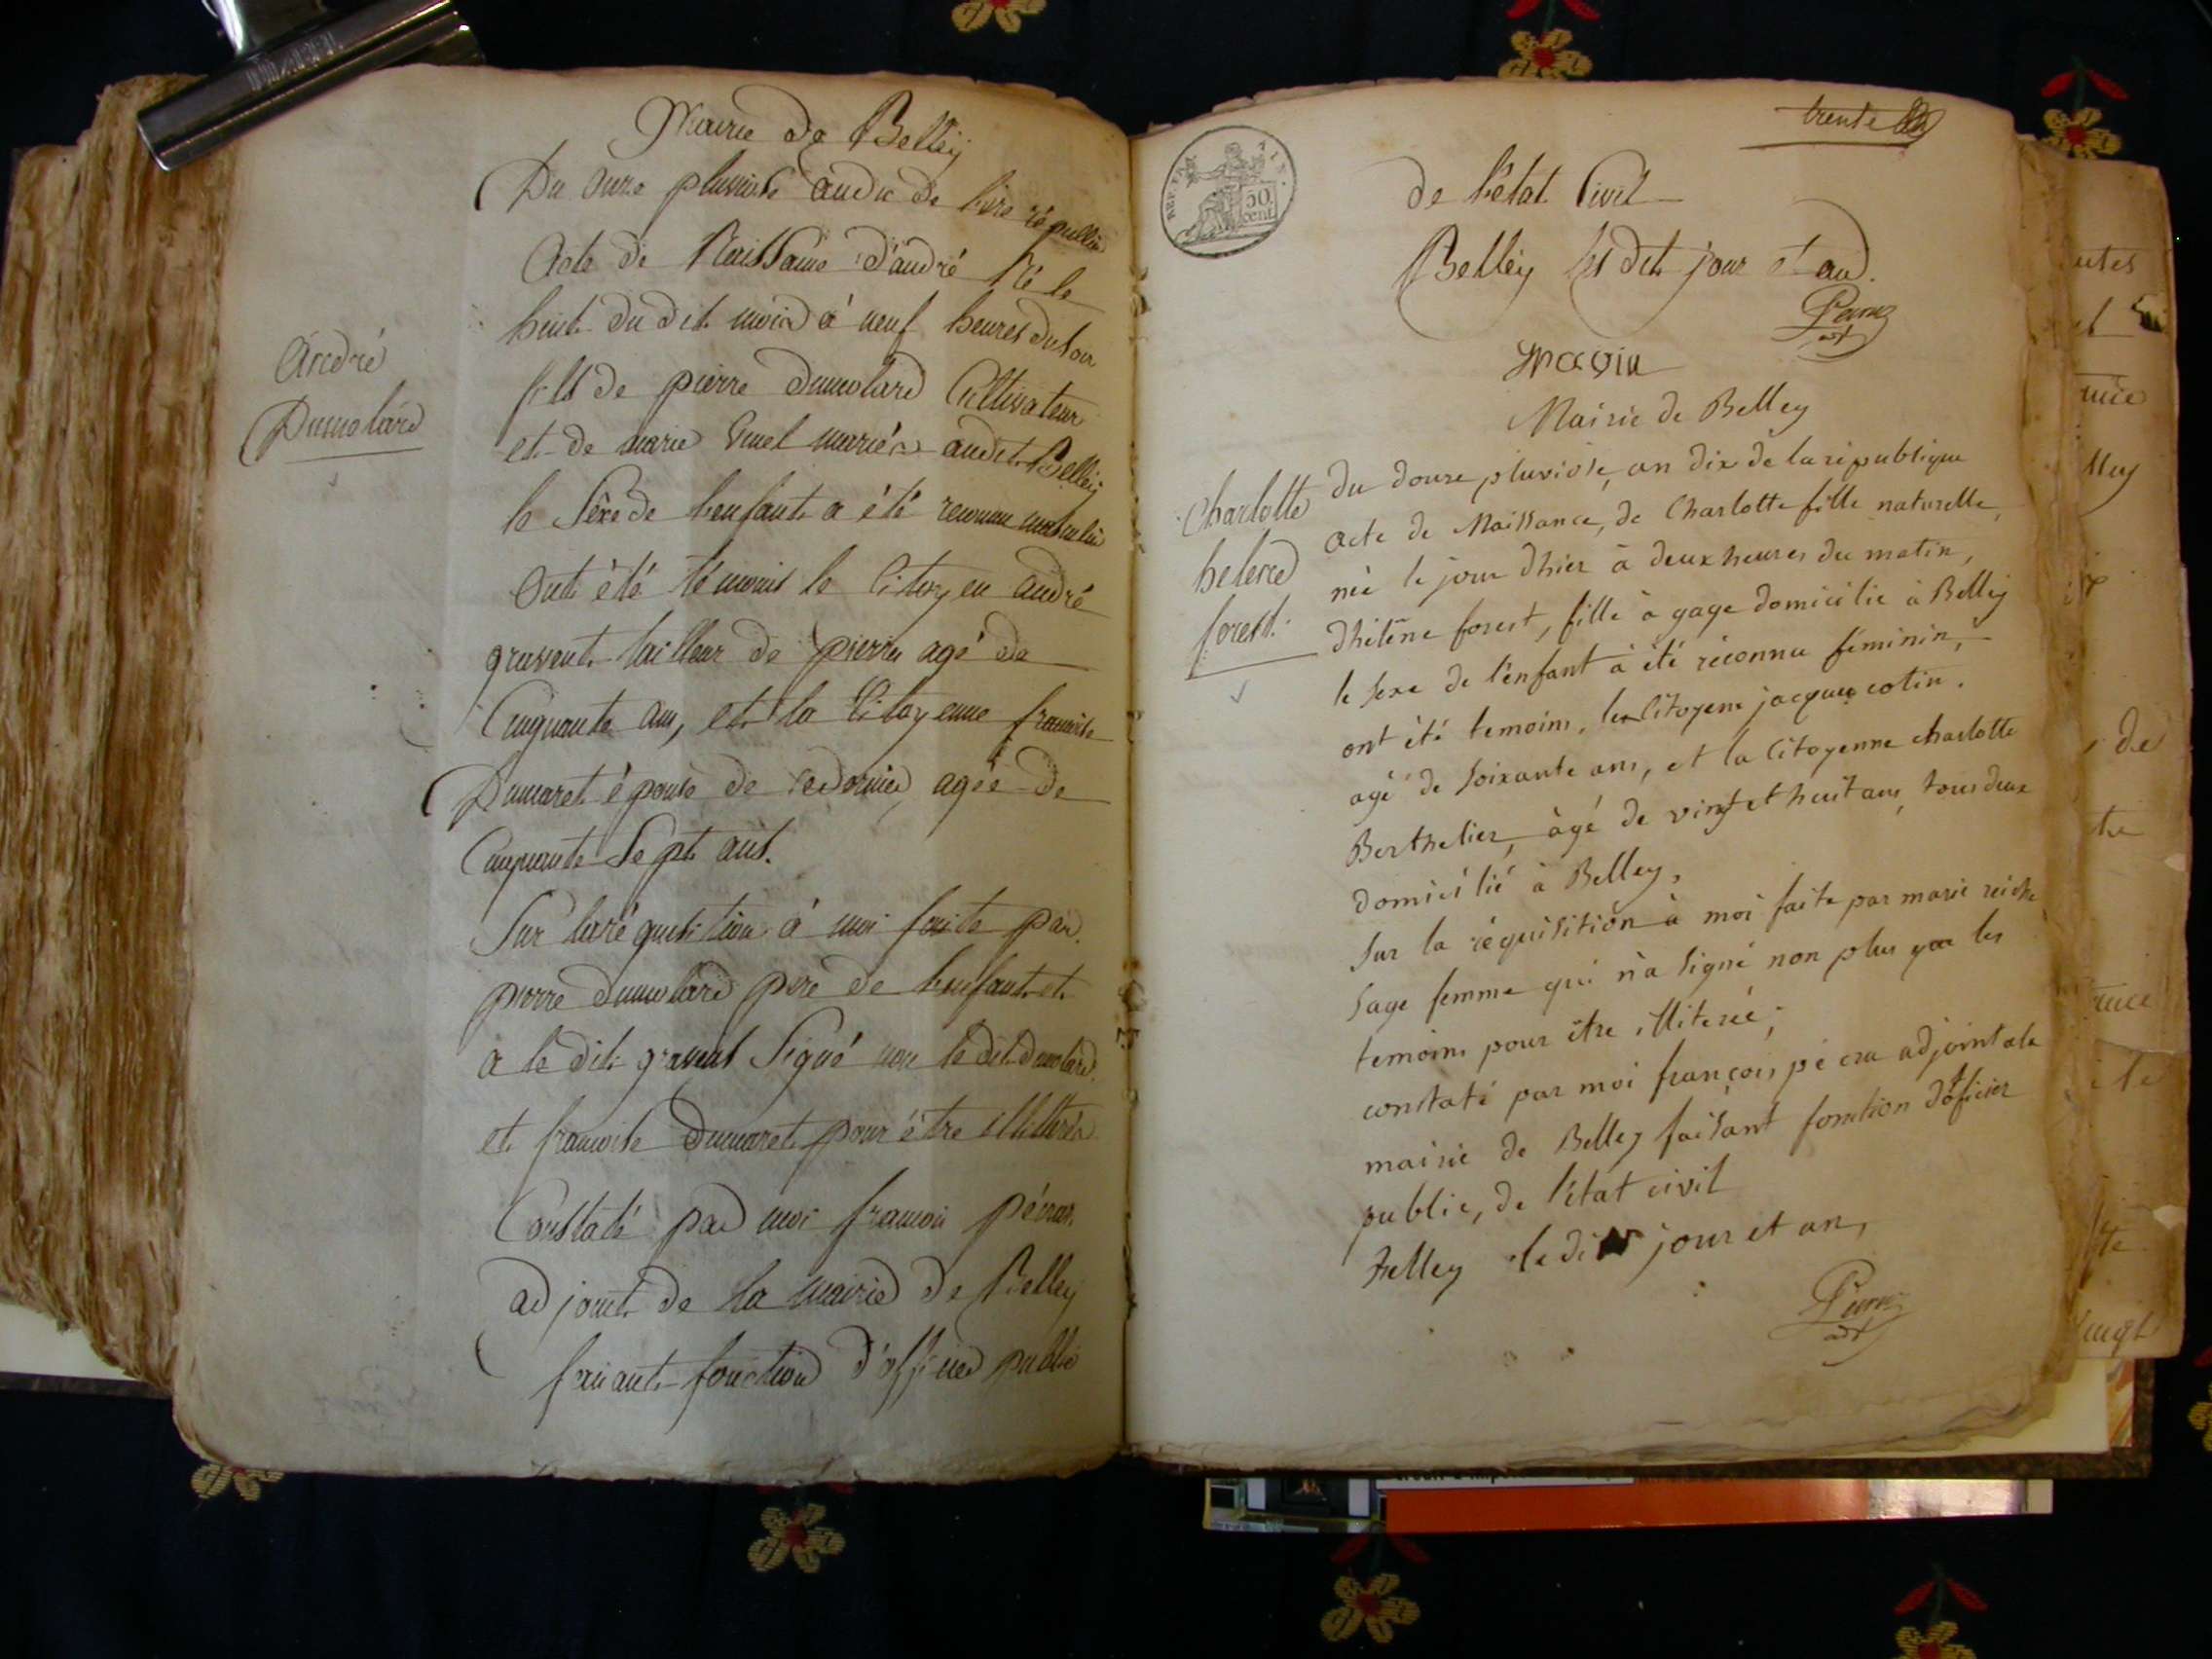 Mairie de Belley
Du onze pluviose an dix de l'ère républic
Acte de Naissance d'andré Né le
huit du dit mois à neuf heures du soir
fils de pierre Dumolard Cultivateur
et de marie mariés audit Belley
le Sèxe de l'enfant a été reconnu masculin
Ont été témoins le Citoyen andré
gravent tailleur de pierre agé de
Cinquante ans, et la Citoyenne francoise
Dumaret épouse de agée de
Cinquante Sept ans.
Sur la réquisition à moi faite par
pierre dumolard pere de l'enfant et
a le dit gravent Signé non le dit dumolard
et francoise Dumaret pour être illitérés
Constaté par moi francois pécra
adjoint de la mairie de Belley
faisant fonction d'officier public
André
Dumolard
trente
REP. FRA.
50
cent
de l'état Civil
Belley les dit jour et an
Mairie de Belley
du douze pluviose, an dix de la république
acte de Naissance, de Charlotte fille naturelle,
née le jour dhier à deux heures du matin,
dhélène forest, fille à gage domicilié à Belley
le sexe de l'énfant à été réconnu féminin,
ont été temoins, les Citoyens jacques cotin.
agé de soixante ans, et la Citoyenne charlotte
Berthelier, àgé de vingt et huit ans, tous deux
domicilié à Belley,
Sur la réquisition à moi faite par marie
Sage femme qui n'a signé non plus que les
temoins pour être illiterée;
constaté par moi françois pé cra adjoint ala
mairie de Belley faisant fonction d'officier
public, de l'état civil
Belley le dit jour et an,
Charlotte
helene
forest.